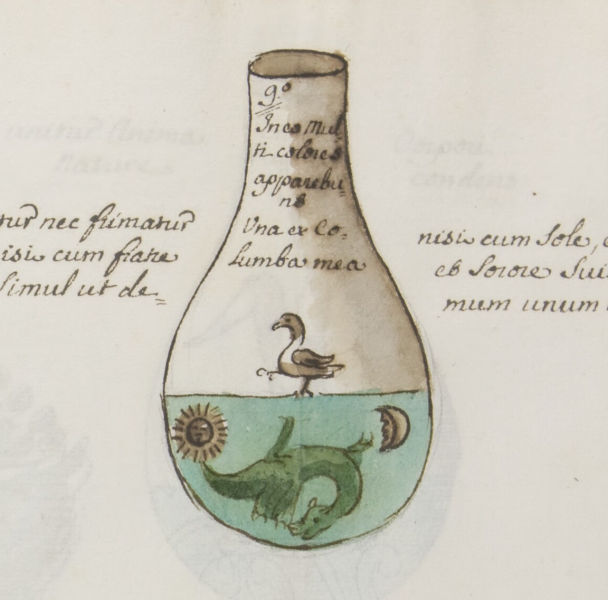 9.º
In eo Mul
ti colores
apparebu-
nt
Una ex Co-
lumba mea
tur nec firmatur
isi cum fratre
simul ut de-
nisi cum Sole, e
et Sorore Sui
mum unum